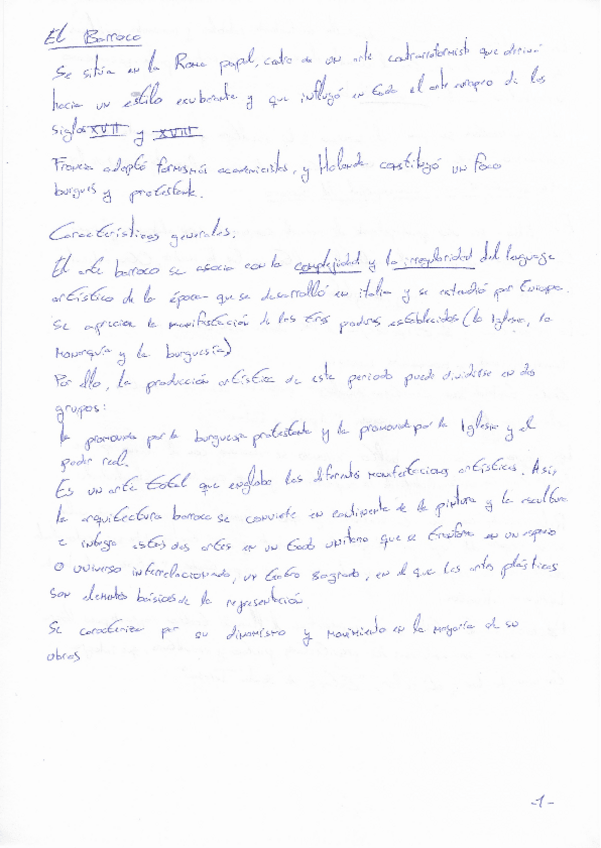 El Barroco
Se sitúa en la Roma papal, centro de un arte contrarreformista que derivó
hacia un estilo exuberante y que influyó en todo el arte europeo de los
siglos XVII y XVIII
Francia adoptó formismos academicistas, y Holanda constituyó un foco
burgués y protestante.
Características generales:
El arte barroco se asocia con la complejidad y la irregularidad del lenguage
artístico de la época que se desarrolló en italia y se extendió por Europa.
Se aprecian la manifestación de los tres poderes establecidos (la Iglesia, la
Monarquía y la burguesía)
Por ello, la producción artística de este periodo puede dividirse en dos
grupos:
la promovida por la burguesia protestante y la promovida por la Iglesia y el
poder real.
Es un arte total que engloba las diferentes manifestaciones artísticas. Así,
la arquitectura barroca se convierte en continente de la pintura y la escultura
e integra estas dos artes en un todo unitario que se transforma en un espacio
o universo interrelacionado, un teatro sagrado, en el que las artes plásticas
son elementos básicos de la representación.
Se caracterizan por su dinamismo y movimiento en la mayoría de su
obras
-1-